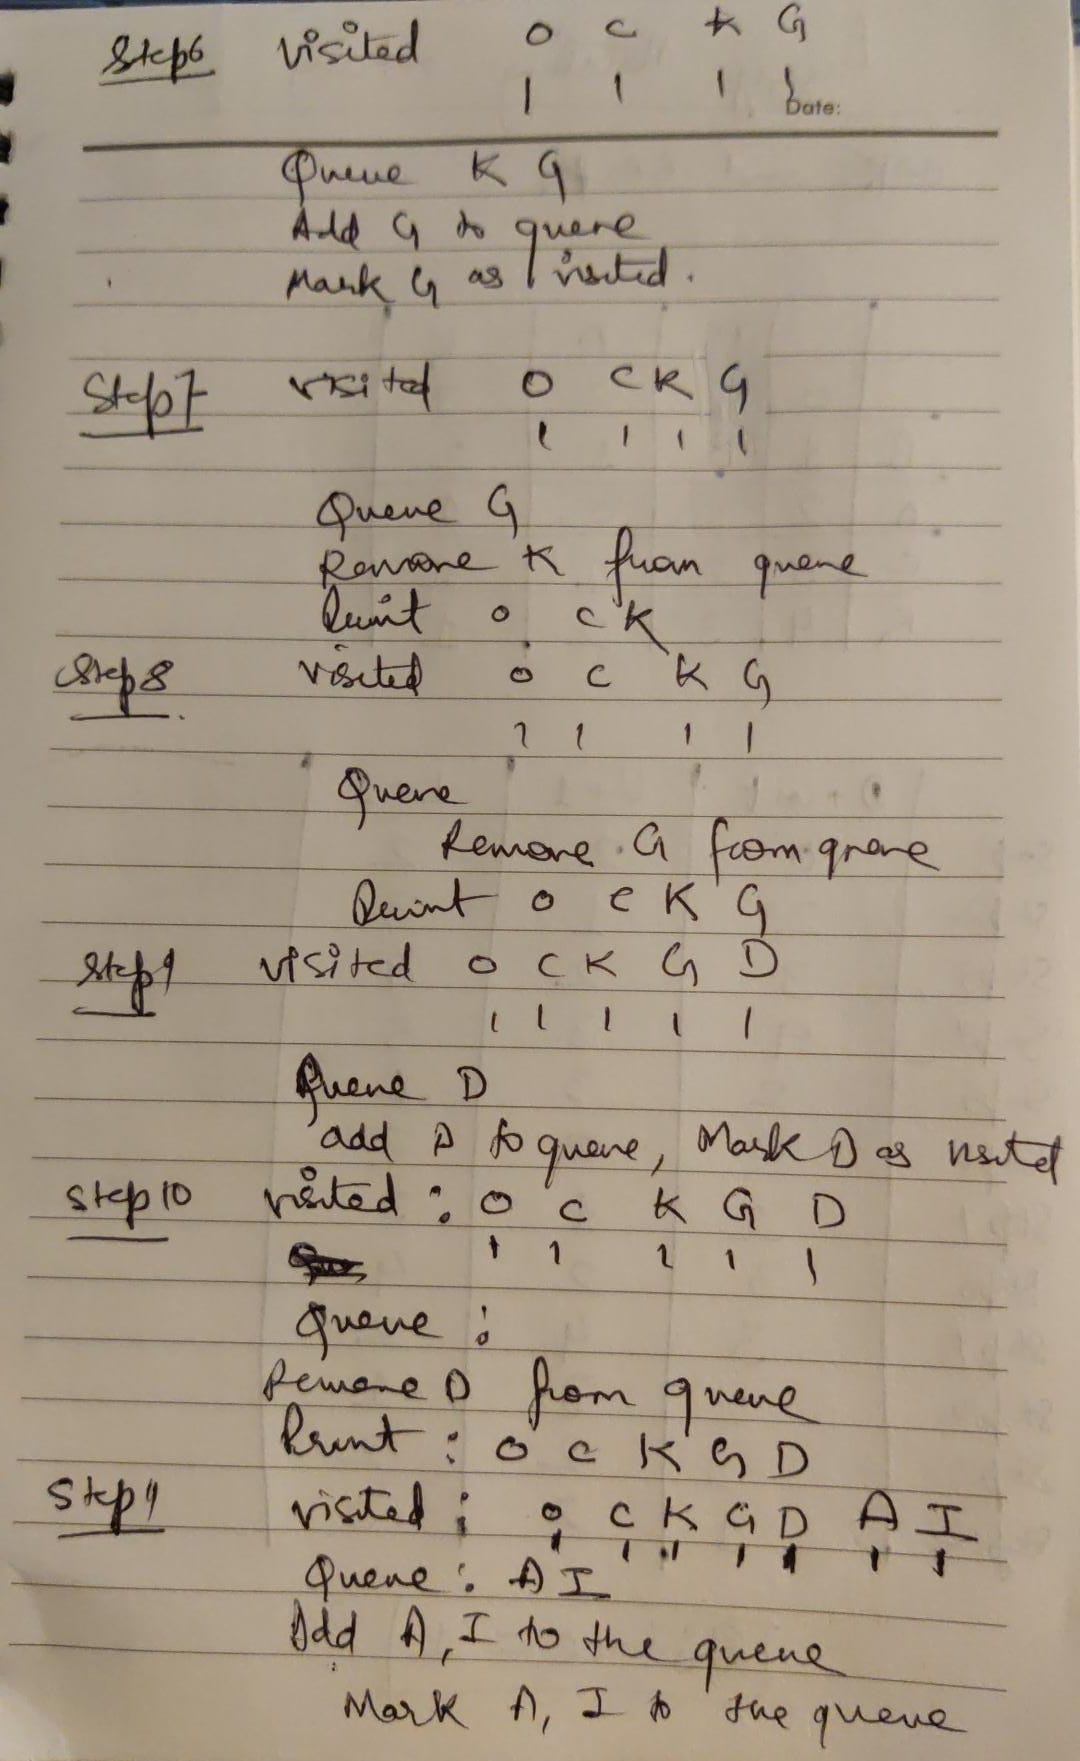 Step6 visited O C K G
1 1 1 1
Date:
Queue K G
Add G to queue
Mark G as visited.
Step7 visited O C K G
1 1 1 1
Queue G
Remove K from queue
Print O C K
Step 8 visited O C K G
1 1 1 1
Queue
Remove G from queue
Print O C K G
Step 9 visited O C K G D
1 1 1 1 1
Queue D
add D to queue, Mark D as visited
Step 10 visited : O C K G D
1 1 1 1 1
Queue :
Remove D from queue
Print : O C K G D
Step 11 visited : O C K G D A I
1 1 1 1 1 1 1
Queue : A I
Add A, I to the queue
Mark A, I to the queue